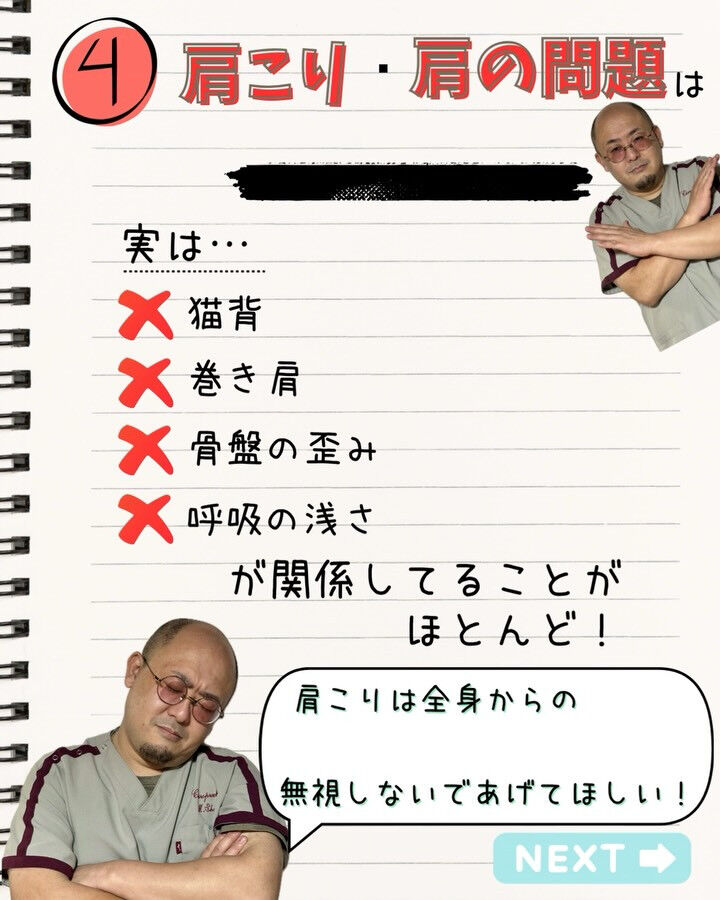 4 肩こり・肩の問題は
実は…
猫背
巻き肩
骨盤の歪み
呼吸の浅さ
が関係してることが
ほとんど！
肩こりは全身からの
無視しないであげてほしい！
NEXT